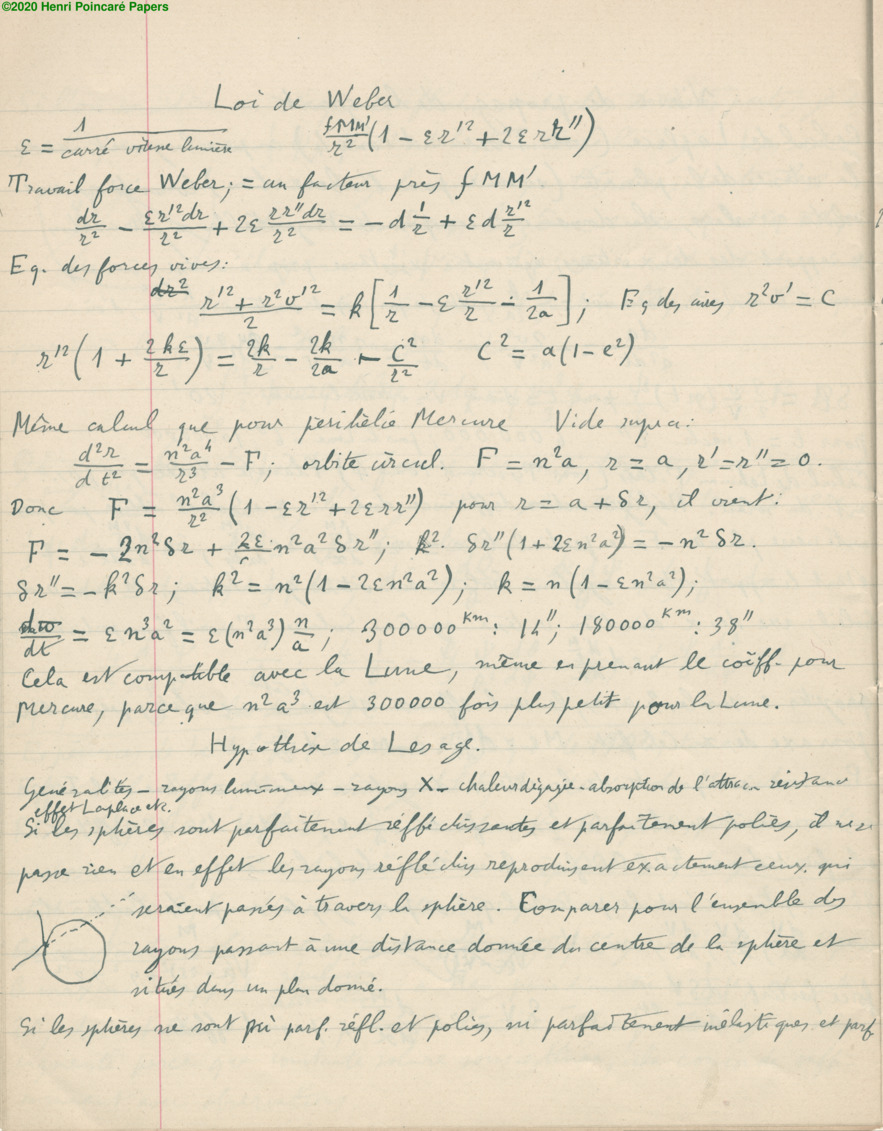 ©2020 Henri Poincaré Papers
Loi de Weber
ε = 1/carré vitesse lumière   fMM'/r² (1 − εr'² + 2εrr'')
Travail force Weber; = au facteur près fMM'.
dr/r² − εr'²dr/r² + 2ε rr''dr/r² = −d 1/r + εd r'²/r
Eq. des forces vives:
dr² (r'² + r²v'²)/2 = k[1/r − ε r'²/r − 1/2a]; Eq des aires r²v' = C
r'²(1 + 2kε/r) = 2k/r − 2k/2a − C²/r²   C² = a(1−e²)
Même calcul que pour périhélie Mercure Vide supra:
d²r/dt² = n²a⁴/r³ − F; orbite circul. F = n²a, r = a, r'=r''=0.
Donc F = n²a³/r² (1 − εr'² + 2εrr'') pour r = a + δr, il vient:
F = −2n²δr + 2ε n²a²δr''; k². δr''(1+2εn²a²) = −n²δr.
δr'' = −k²δr; k² = n²(1−2εn²a²); k = n(1−εn²a²);
dϖ/dt = εn³a² = ε(n²a³) n/a; 300000 Km: 14''; 180000 Km: 38''
Cela est compatible avec la Lune, même en prenant le coëff. pour
Mercure, parce que n²a³ est 300000 fois plus petit pour la Lune.
Hypothèse de Lesage.
Généralités – rayons lumineux – rayons X – chaleur dégagée – absorption de l'attracn résistance
effet Laplace etc.
Si les sphères sont parfaitement réfléchissantes et parfaitement polies, il ne se
passe rien et en effet les rayons réfléchis reproduisent exactement ceux qui
seraient passés à travers la sphère. Comparer pour l'ensemble des
rayons passant à une distance donnée du centre de la sphère et
situés dans un plan donné.
Si les sphères ne sont ni parf. réfl. et polies, ni parfaitement inélastiques et parf